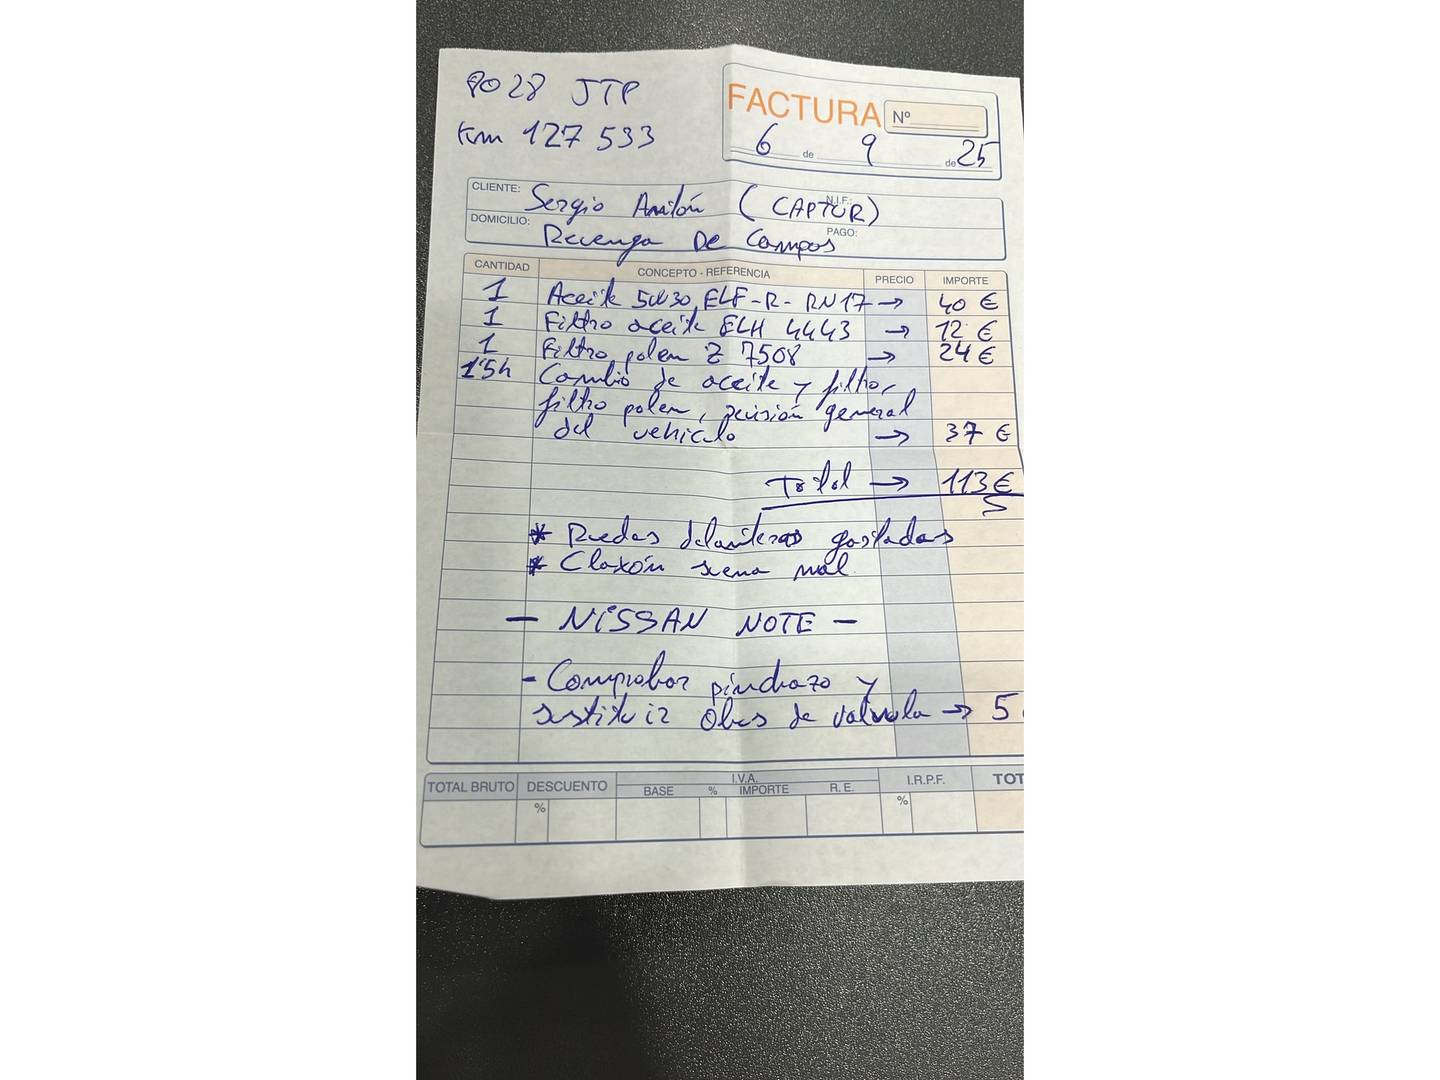 9028 JTP
km 127 533
FACTURA Nº
6 de 9 de 25
CLIENTE: Sergio (CAPTUR) N.I.F.:
DOMICILIO: Revenga De Campos PAGO:
CANTIDAD CONCEPTO - REFERENCIA PRECIO IMPORTE
1 Aceite 5W30 ELF-R-RN17 → 40 €
1 Filtro aceite ELH 4443 → 12 €
1 Filtro polen Z 7508 → 24 €
1'5h Cambio de aceite y filtro,
filtro polen, revisión general
del vehiculo → 37 €
Total → 113 €
* Ruedas delanteras gastadas
* Claxón suena mal
- NISSAN NOTE -
- Comprobar pinchazo y
sustituir obus de valvula → 5
TOTAL BRUTO DESCUENTO I.V.A. I.R.P.F. TOT
% BASE % IMPORTE R. E. %